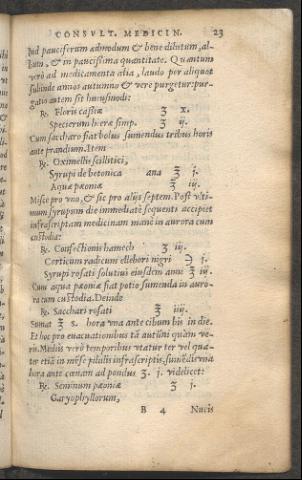 CONSVLT. MEDICIN. 23
sed pauciferum admodum & bene dilutum, al-
bum, & in paucissima quantitate. Quantum
verò ad medicamenta alia, laudo per aliquot
subinde annos autumno & vere purgetur: pur-
gatio autem sit huiusmodi:
℞. Floris cassiæ ʒ x.
Specierum hieræ simp. ʒ ij.
Cum saccharo fiat bolus sumendus tribus horis
ante prandium. Item
℞. Oximellis scillitici,
Syrupi de betonica ana ℥ j.
Aquæ pæoniæ ℥ iij.
Misce pro vno, & sic pro alijs septem. Post vlti-
mum syrupum die immediatè sequenti accipiet
infrascriptam medicinam manè in aurora cum
custodia:
℞. Confectionis hamech ʒ iij.
Corticum radicum ellebori nigri ℈ j.
Syrupi rosati solutiui eiusdem anni ℥ iij.
Cum aqua pæoniæ fiat potio sumenda in auro-
ra cum custodia. Deinde
℞. Sacchari rosati ℥ iiij.
Sumat ℥ s. hora vna ante cibum bis in die.
Et hoc pro euacuationibus tã autũni quàm ve-
ris. Medijs verò temporibus vtatur ter vel qua-
ter etiã in mẽse pilulis infrascriptis, sumẽdis vna
hora ante cœnam ad pondus ʒ. j. videlicet:
℞. Seminum pæoniæ ʒ j.
Garyophyllorum,
B 4 Nucis